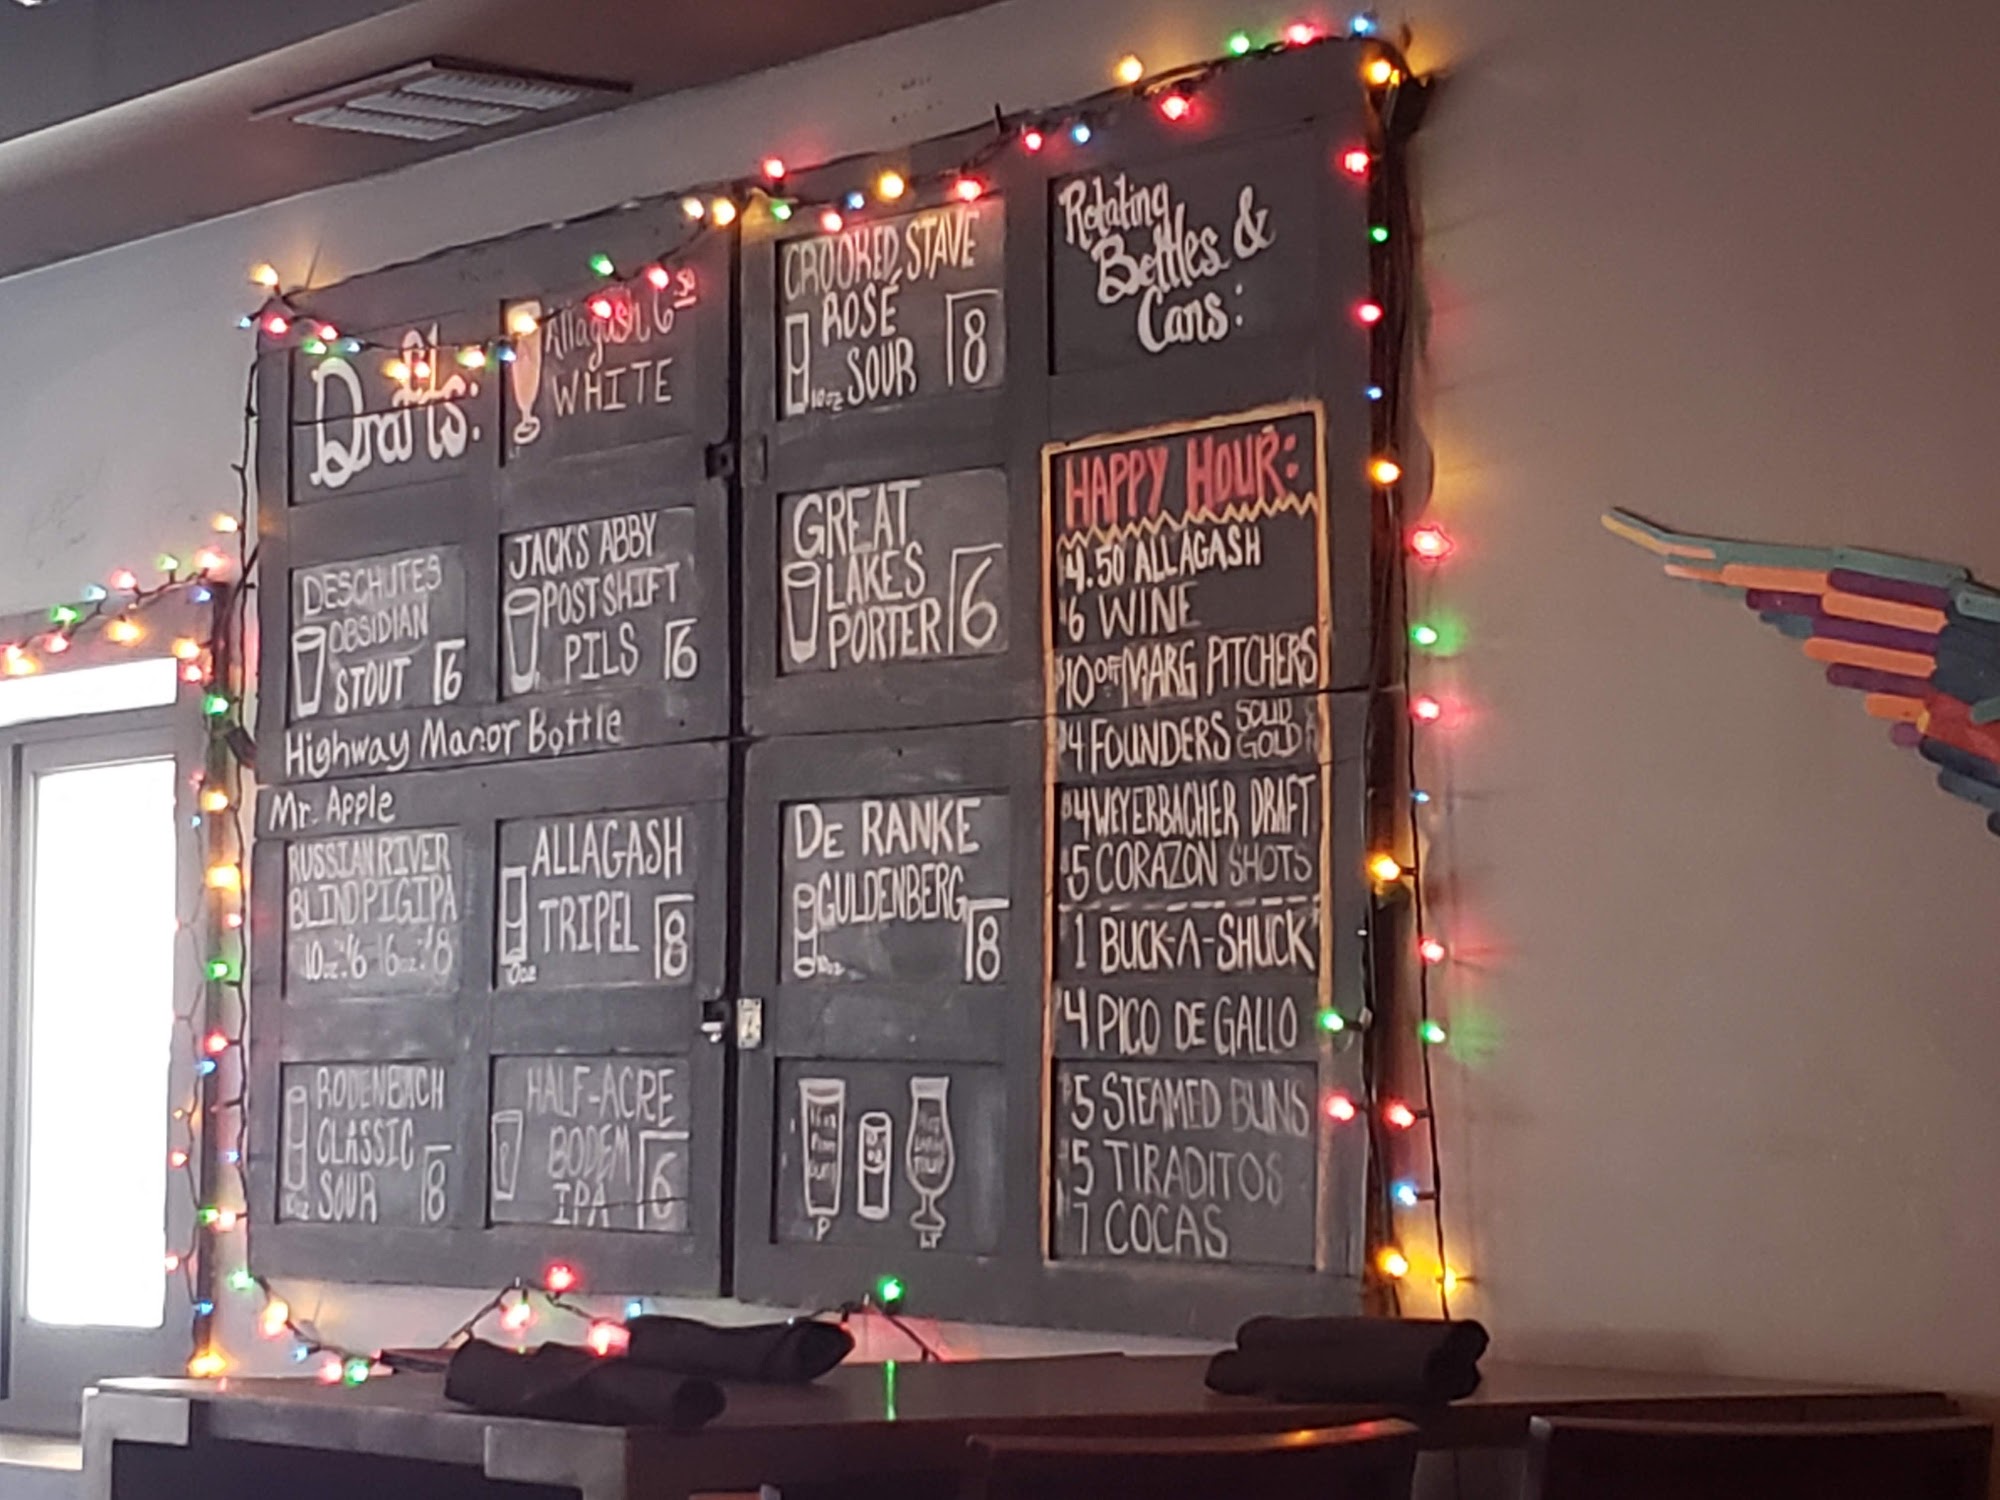 Drafts:
Allagash 6.50
WHITE
LT
DESCHUTES
OBSIDIAN
STOUT 6
JACK'S ABBY
POST SHIFT
PILS 6
Highway Manor Bottle
Mr. Apple
RUSSIAN RIVER
BLIND PIG IPA
10oz:6 16oz:8
ALLAGASH
TRIPEL 8
10oz
RODENBACH
CLASSIC
SOUR 8
10oz
HALF-ACRE
BODEM
IPA 6
P
CROOKED STAVE
ROSÉ
SOUR 8
10oz
GREAT
LAKES
PORTER 6
DE RANKE
GULDENBERG
8
10oz
P
LT
Rotating
Bottles &
Cans:
HAPPY HOUR:
$4.50 ALLAGASH
$6 WINE
$10 OFF MARG PITCHERS
$4 FOUNDERS SOLID GOLD
$4 WEYERBACHER DRAFT
$5 CORAZON SHOTS
1 BUCK-A-SHUCK
$4 PICO DE GALLO
$5 STEAMED BUNS
$5 TIRADITOS
7 COCAS